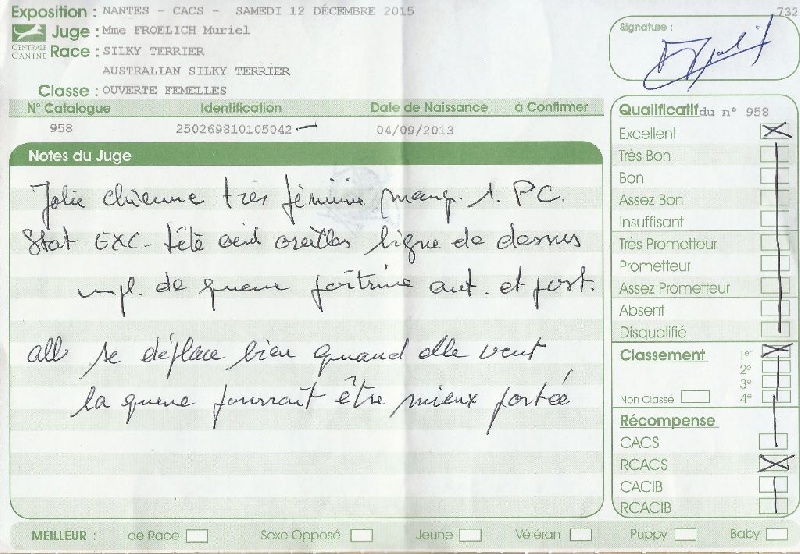 Exposition : NANTES - CACS - SAMEDI 12 DÉCEMBRE 2015
732
CENTRALE CANINE
Juge : Mme FROELICH Muriel
Race : SILKY TERRIER
AUSTRALIAN SILKY TERRIER
Classe : OUVERTE FEMELLES
Signature :
N° Catalogue Identification Date de Naissance à Confirmer
958 250269810105042 04/09/2013
Notes du Juge
Jolie chienne très féminine manq. 1. PC.
Stat EXC - tête oeil oreilles ligne de dessus
impl. de queue poitrine ant. et post.
all. se déplace bien quand elle veut
la queue pourrait être mieux portée
Qualificatif du n° 958
Excellent
Très Bon
Bon
Assez Bon
Insuffisant
Très Prometteur
Prometteur
Assez Prometteur
Absent
Disqualifié
Classement 1er
2e
3e
Non Classé 4e
Récompense
CACS
RCACS
CACIB
RCACIB
MEILLEUR : de Race Sexe Opposé Jeune Vétéran Puppy Baby